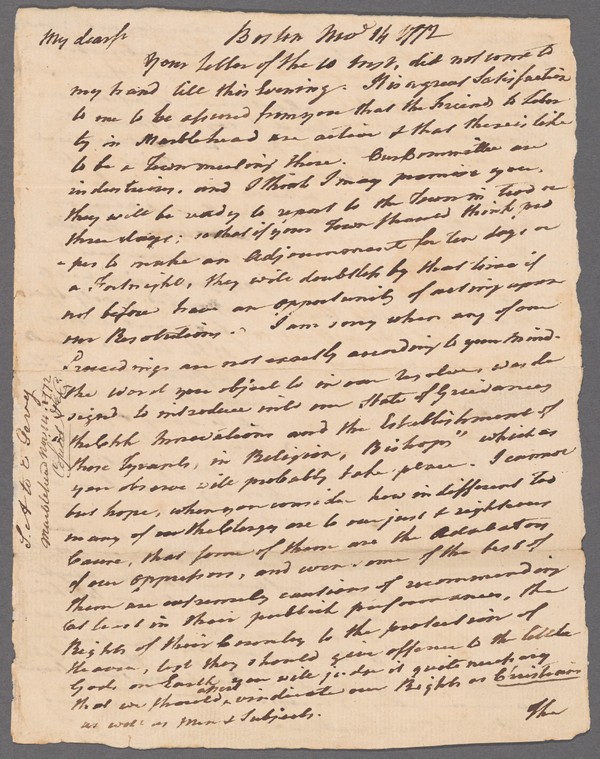 My dear Sr
Boston Novr 14 1772
Your Letter of the 10 Inst, did not come to
my hand till this Evening. It is a great Satisfaction
to me to be assured from you that the Friends to Liber
ty in Marblehead are active & that there is like
to be a Town meeting there. Our Committee are
industrious, and I think I may promise you,
they will be ready to report to the Town in two or
three days; so that if your Town should think pro
-per to make an Adjournment for ten days or
a Fortnight, they will doubtless by that time if
not before have an opportunity of acting upon
our Resolutions. I am sorry when any of our
Proceedings are not exactly according to your Mind.
The word you object to in our resolves, was de
signd to introduce into our State of Grievances
the Chh Innovations and the Establishment of
those Tyrants, in Religion, Bishops" which as
you observe will probably take place. I cannot
but hope, when you consider how indifferent too
many of our the Clergy are to our just & righteous
Cause, that some of them are the Adulators
of our Oppressors, and even some of the best of
them are extremely cautious of recommending
(at least in their publick performances, the
Rights of their Country to the protection of
Heaven, lest they should give offence to the little
Gods on Earth, you will judge it quite necessary
that we should assert & vindicate our Rights as Christians
as well as Men & Subjects.
The
S. A. to E Gerry
Marblehead Nov. 14. 1772